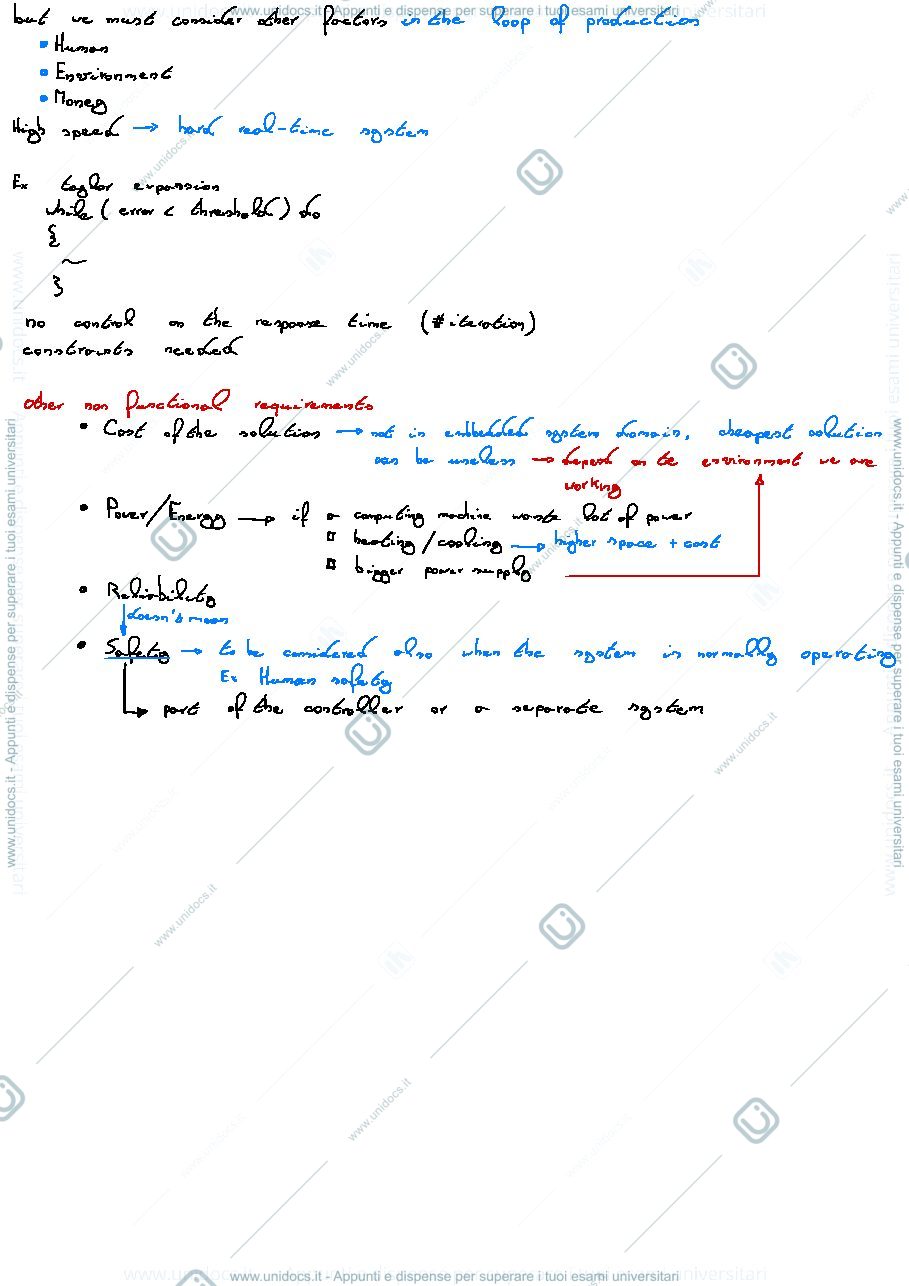 but we must consider other factors in the loop of production
Human
Environment
Money
High speed → hard real-time system
Ex taylor expansion
while ( error < threshold ) do
{
~
}
no control on the response time (#iteration)
constraints needed
other non functional requirements
• Cost of the solution → not in embedded system domain, cheapest solution
can be useless → depend on the environment we are
working
• Power/Energy → if a computing machine waste lot of power
heating/cooling → higher space + cost
bigger power supply
• Reliability
doesn't mean
• Safety → to be considered also when the system is normally operating
Ex Human safety
part of the controller or a separate system
www.unidocs.it - Appunti e dispense per superare i tuoi esami universitari
www.unidocs.it - Appunti e dispense per superare i tuoi esami universitari
www.unidocs.it - Appunti e dispense per superare i tuoi esami universitari
www.unidocs.it - Appunti e dispense per superare i tuoi esami universitari
www.unidocs.it
www.unidocs.it
www.unidocs.it
www.unidocs.it